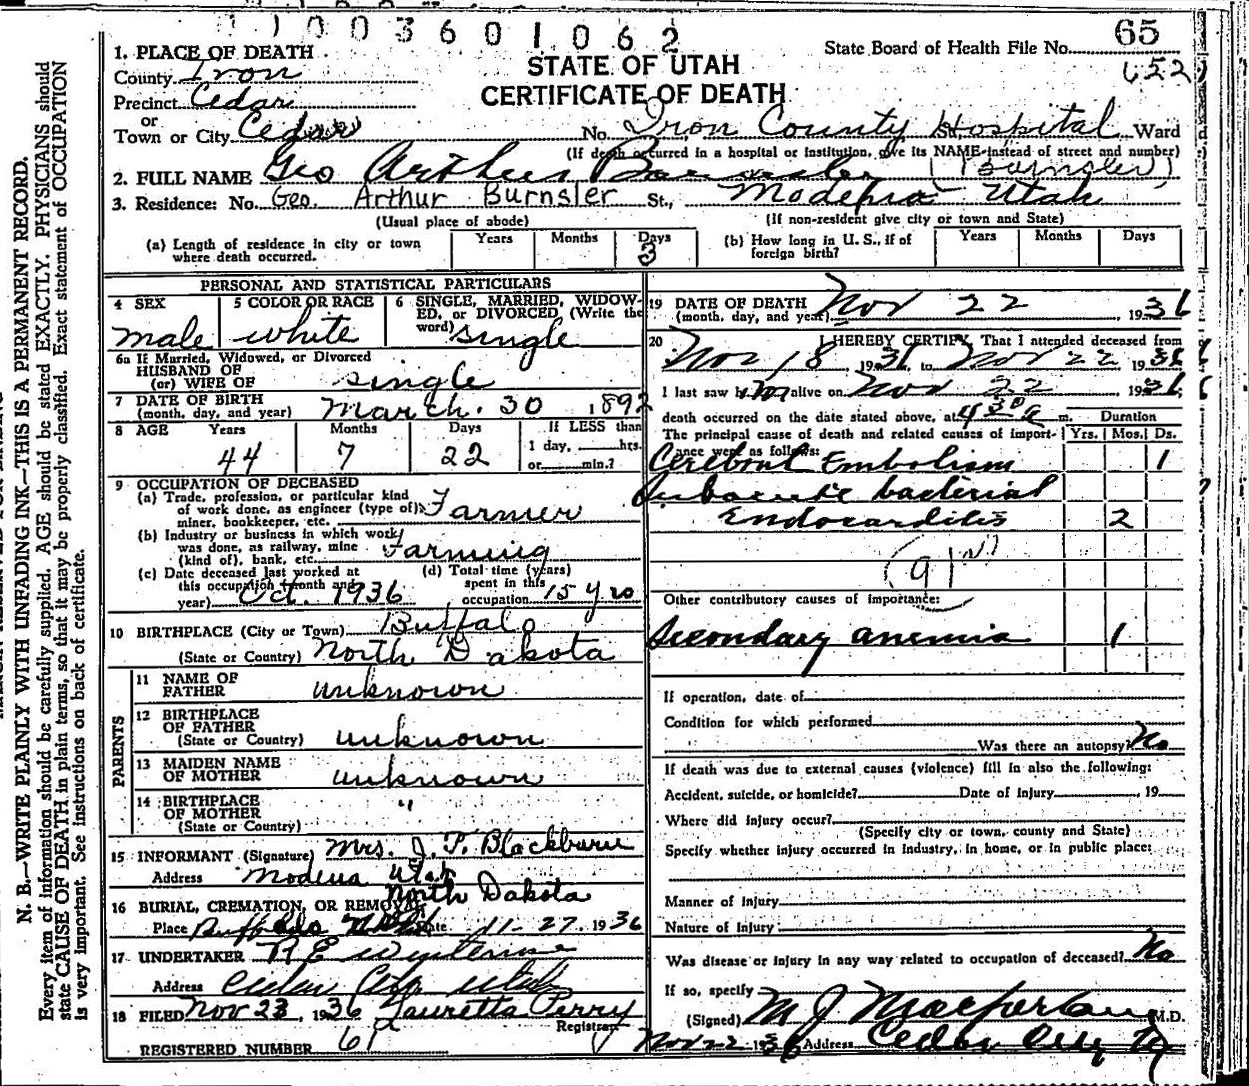 1003601062
State Board of Health File No. 65
652
STATE OF UTAH
CERTIFICATE OF DEATH
1. PLACE OF DEATH
County Iron
Precinct Cedar
or
Town or City Cedar No. Iron County Hospital Ward
(If death occurred in a hospital or institution, give its NAME instead of street and number)
2. FULL NAME Geo Arthur (Burnsler)
3. Residence: No. Geo. Arthur Burnsler St., Modena Utah
(Usual place of abode) (If non-resident give city or town and State)
(a) Length of residence in city or town where death occurred. Years Months Days 3
(b) How long in U. S., if of foreign birth? Years Months Days
PERSONAL AND STATISTICAL PARTICULARS
4 SEX male
5 COLOR OR RACE white
6 SINGLE, MARRIED, WIDOWED, or DIVORCED, (Write the word) single
6a If Married, Widowed, or Divorced
HUSBAND OF
(or) WIFE OF single
7 DATE OF BIRTH
(month, day, and year) March. 30 1892
8 AGE Years 44 Months 7 Days 22 If LESS than 1 day, hrs. or min.?
9 OCCUPATION OF DECEASED
(a) Trade, profession, or particular kind
of work done, as engineer (type of),
miner, bookkeeper, etc. Farmer
(b) Industry or business in which work
was done, as railway, mine
(kind of), bank, etc. Farming
(c) Date deceased last worked at
this occupation (month and
year) Oct. 1936
(d) Total time (years)
spent in this
occupation 15 yrs
10 BIRTHPLACE (City or Town) Buffalo
(State or Country) North Dakota
PARENTS
11 NAME OF
FATHER unknown
12 BIRTHPLACE
OF FATHER
(State or Country) unknown
13 MAIDEN NAME
OF MOTHER unknown
14 BIRTHPLACE
OF MOTHER "
(State or Country)
15 INFORMANT (Signature) Mrs. J. F. Blackburn
Address Modena Utah
North Dakota
16 BURIAL, CREMATION, OR REMOVAL
Place Buffalo Date 11-27, 1936
17 UNDERTAKER
Address Cedar City Utah
18 FILED Nov 23, 1936 Lauretta Perry
Registrar
REGISTERED NUMBER 61
19 DATE OF DEATH
(month, day, and year) Nov 22 1936
20 I HEREBY CERTIFY, That I attended deceased from
Nov 18, 1936, to Nov 22 1936
I last saw him alive on Nov 22 1936
death occurred on the date stated above, at 4 30 a m. Duration
The principal cause of death and related causes of importance were as follows: Yrs. Mos. Ds.
Cerebral Embolism 1
Subacute bacterial
Endocarditis 2
Other contributory causes of importance:
Secondary anemia 1
If operation, date of
Condition for which performed
Was there an autopsy? No
If death was due to external causes (violence) fill in also the following:
Accident, suicide, or homicide? Date of Injury , 19
Where did injury occur?
(Specify city or town, county and State)
Specify whether injury occurred in industry, in home, or in public place:
Manner of Injury
Nature of Injury
Was disease or injury in any way related to occupation of deceased? No
If so, specify
(Signed) M J Macfarlane M.D.
Nov 22 1936 Address Cedar City
N. B.—WRITE PLAINLY WITH UNFADING INK—THIS IS A PERMANENT RECORD.
Every item of information should be carefully supplied. AGE should be stated EXACTLY. PHYSICIANS should
state CAUSE OF DEATH in plain terms, so that it may be properly classified. Exact statement of OCCUPATION
is very important. See instructions on back of certificate.